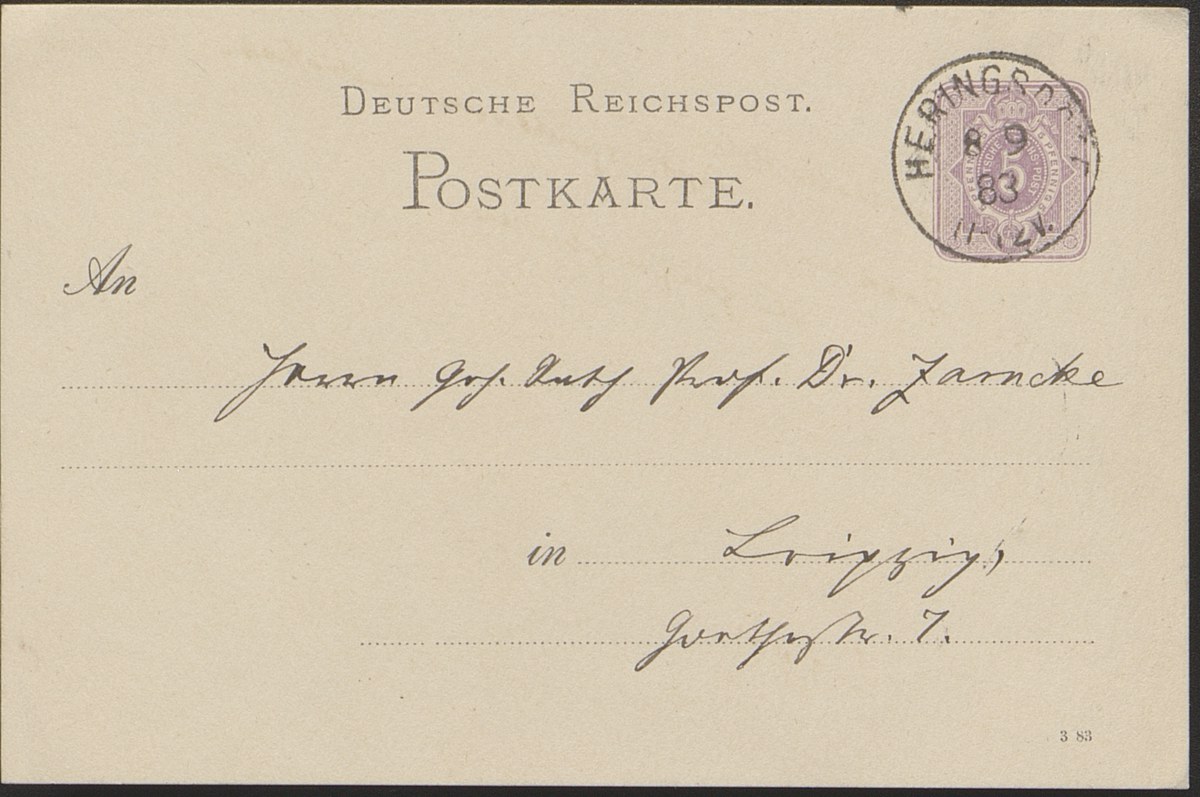 DEUTSCHE REICHSPOST.
POSTKARTE.
HERINGSDORF
8 9
83
11-12V.
5
An
Herrn Geh. Rath Prof. Dr. Zarncke
in Leipzig,
Goethestr. 7.
3 83